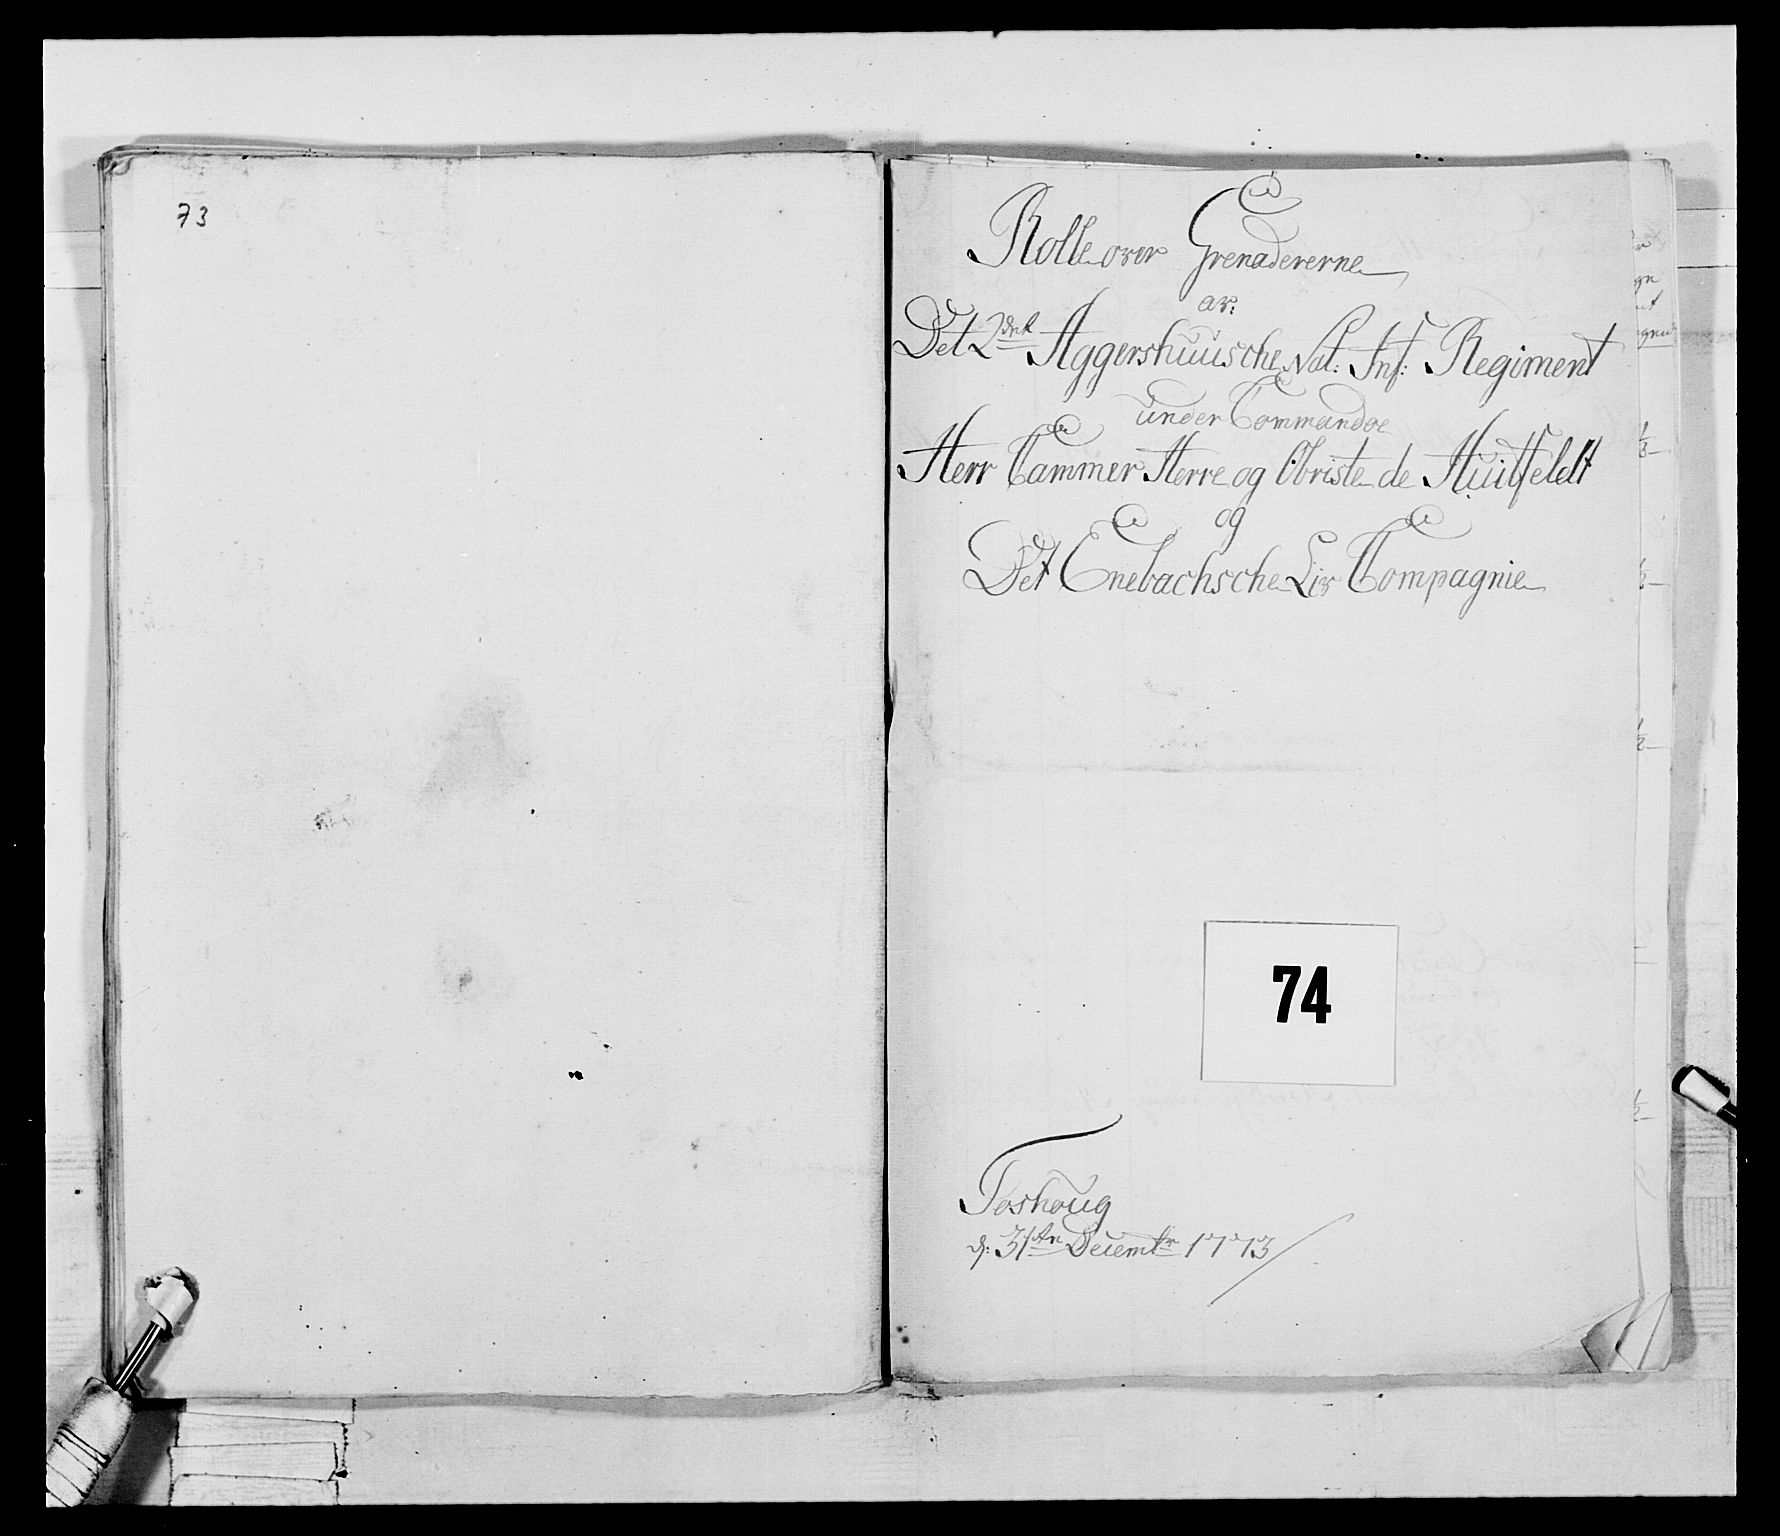 73
Rolle over Grenadererne
av:
Det 2det Aggershuusche Nat: Inf: Regiment
under Commandoe
Herr Cammer Herre og Obriste de Huitfeldt
og
Det Enebachsche Liv Compagnie
74
Toshoug
d: 31ten Decembr 1773